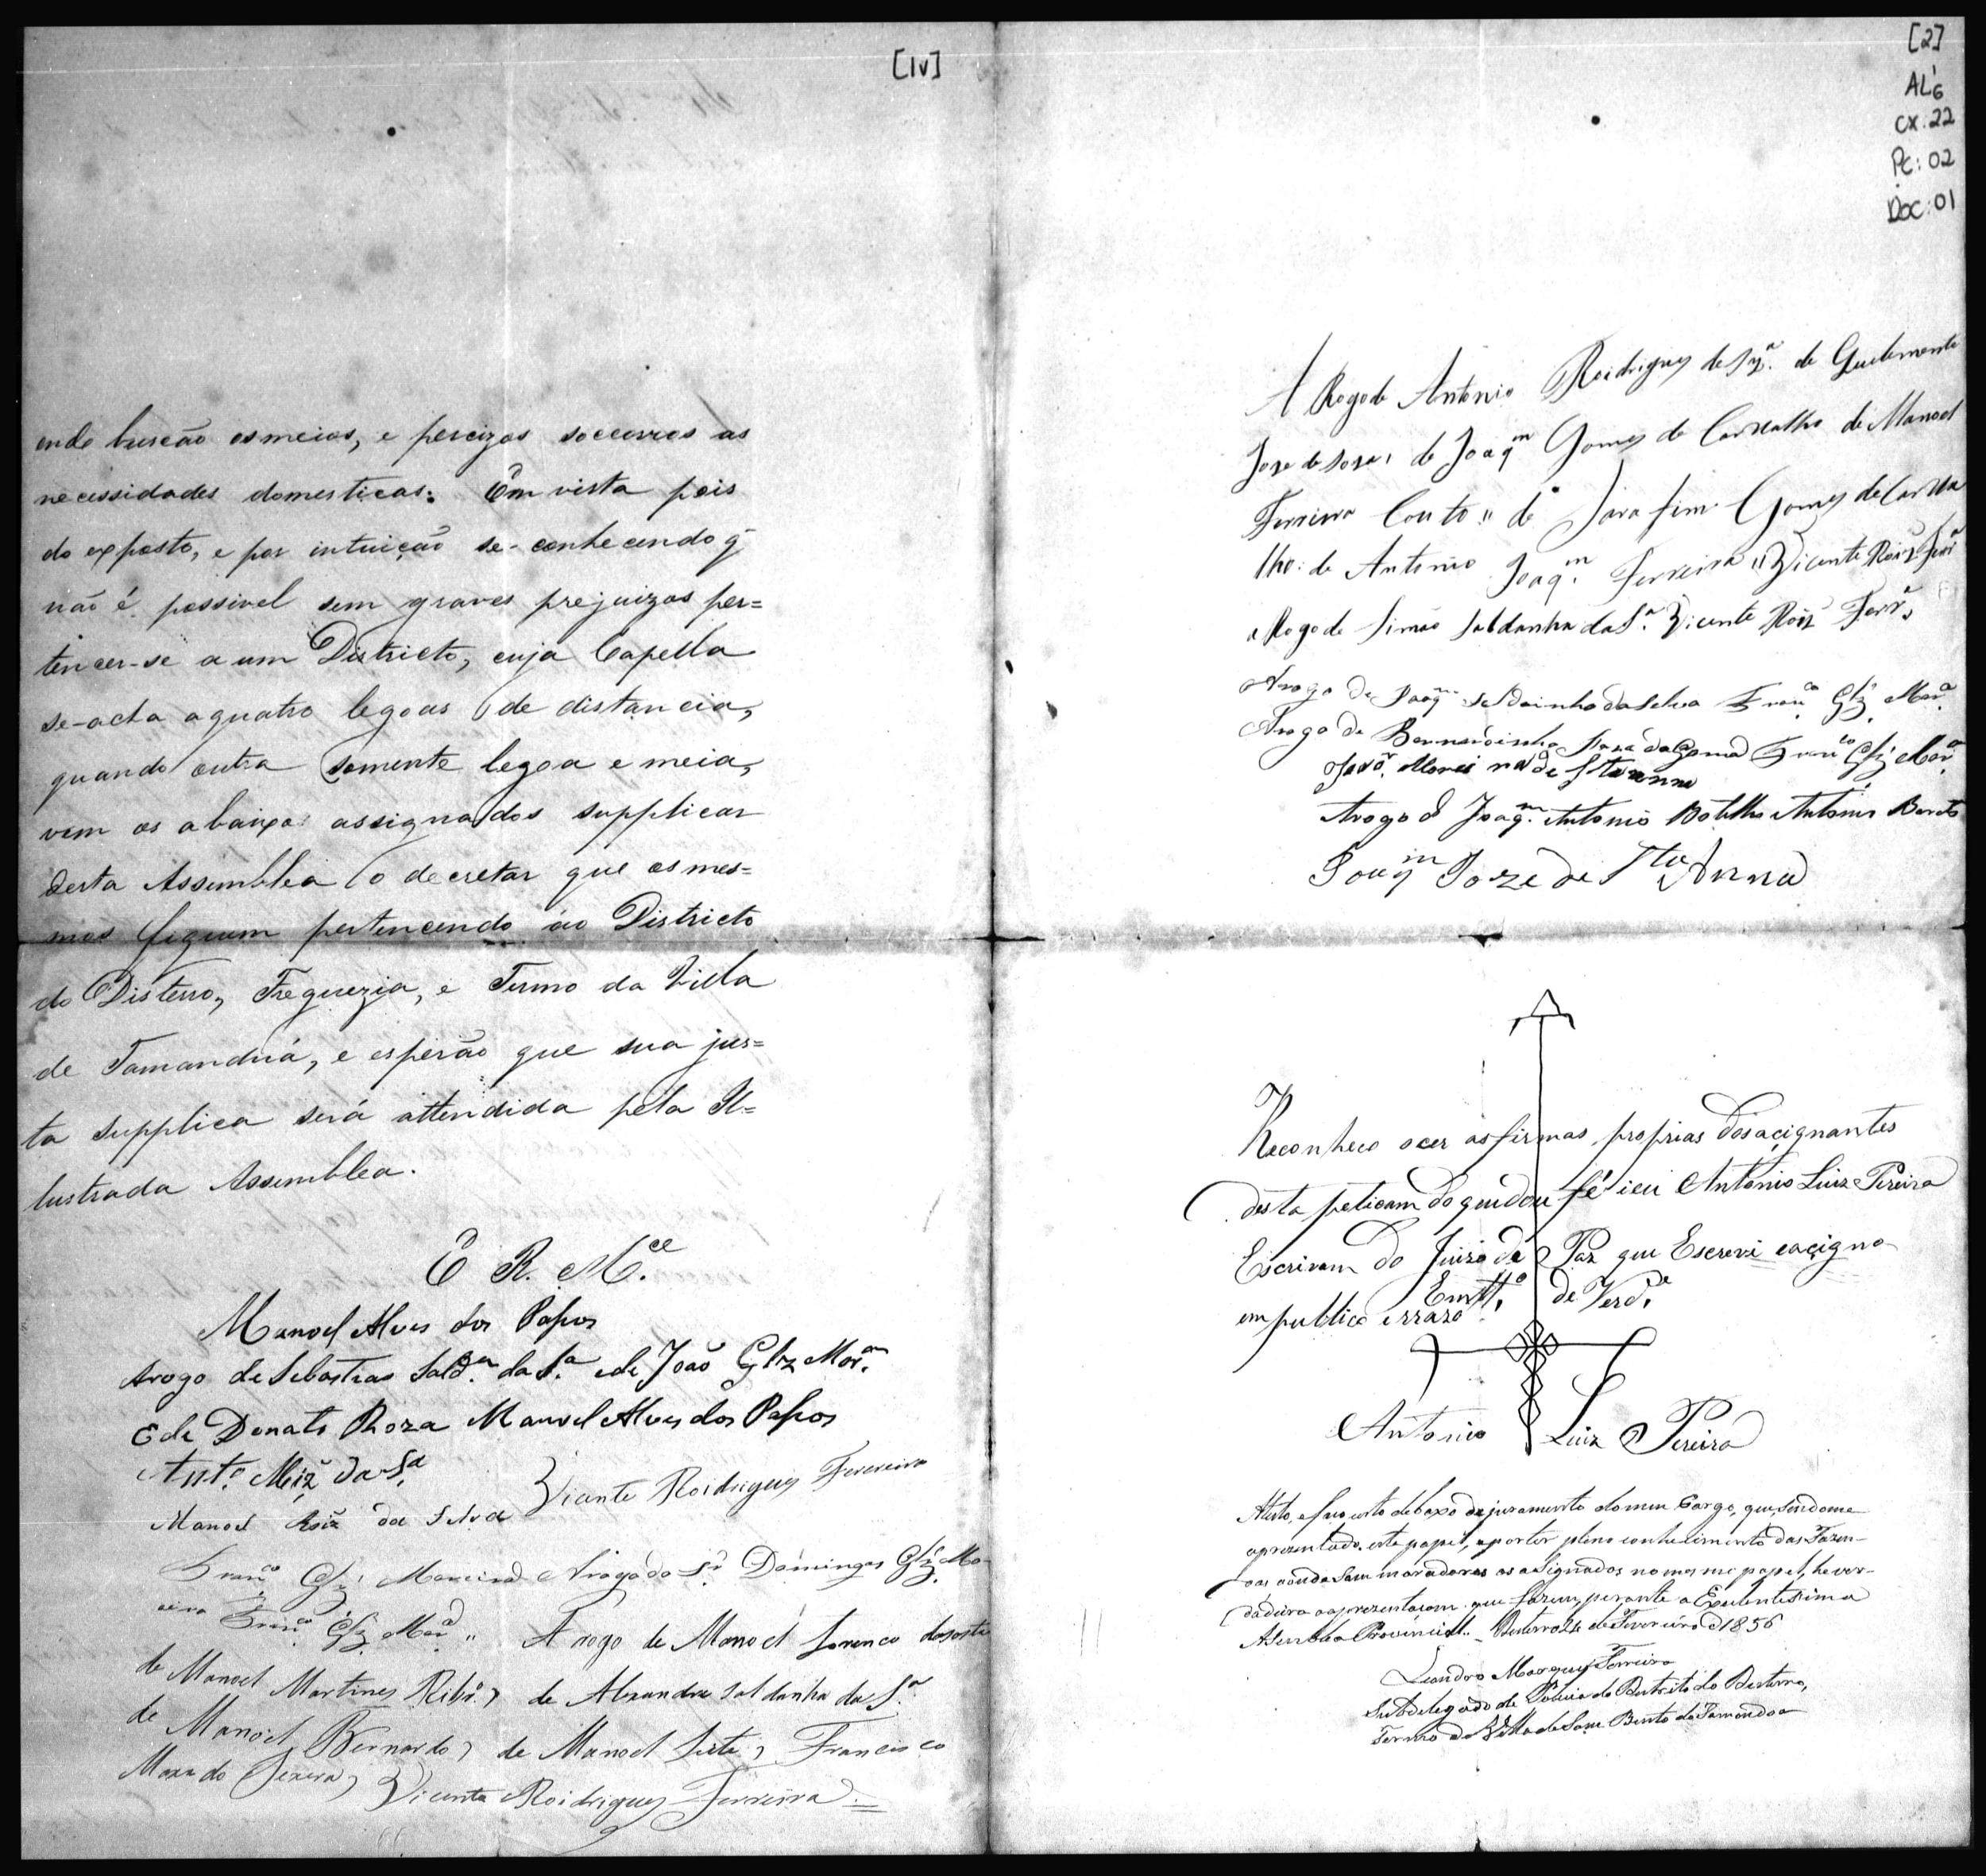 [1v]
onde buscão os meios, e percizos soccorros as
necessidades domesticas. Em vista pois
do exposto, e por intuição se-conhecendo q̃
não é possivel sem graves prejuizos per=
tencer-se a um Districto, cuja Capella
se-acha a quatro legoas de distancia,
quando outra somente legoa e meia,
vem os abaixo assignados supplicar
desta Assemblea o decretar que os mes=
mos fiquem pertencendo ao Districto
do Disterro, Freguezia, e Termo da Villa
de Tamanduá, e esperão que sua jus=
ta supplica será attendida pela Il=
lustrada Assemblea.
E R. M.ce
Manoel Alves dos Passos
Arogo de Sebastiao Sald.a da S.a e de João Glz Mor.a
E de Donato Roza Manoel Alves dos Passos
Ant.o Miz da S.a
Vicente Roidrigues Ferreira
Manoel Roiz da Selva
Fran.co Glz Moreira Arogo do Sr. Domingos Glz Mo-
reira Fran.co Glz Mor.a " A rogo de Manoel Lorenco dacosta
de Manoel Martines Ribr.o, de Alexandre Saldanha da S.a
de Manoel Bernardo, de Manoel Leite, Francisco
Maxado Teixera, Vicente Roidrigues Ferreira
[2]
AL 1/6
cx. 22
Pc: 02
Doc: 01
A Rogo de Antonio Roidrigues de Sz.a de Guelemente
Jose de Soza, de Joaq.m Gomes de Carvalho de Manoel
Ferreira Couto " de Sarafim Gomes de Carva
lho: de Antonio Joaq.m Ferreira " Vicente Roiz Ferr.a
a Rogo de Simão Saldanha da S.a Vicente Roiz Ferr.a
Arogo de Joaq.m Saldainha da Selva Fran.co Glz Mor.a
Arogo de Bernardinho Jose da Gama Fran.co Glz Mor.a
Moreira de St Anna
Arogo d Joaq.m Antonio Botelho Antonio Bareto
Joaq.m Joze de Sta Anna
Reconheco ocer as firmas proprias dos acignantes
desta peticam do que dou fé i eu Antonio Luiz Pereira
Escrivam do Juizo de Paz que Escrevi e acigno
em publico e rrazo
Em tt.o de Verd.e
Antonio Luiz Pereira
Atesto, e faco certo debaxo do juramento do meu Cargo, que, sendome
aprezentado este papel, e por ter pleno conhecimento das Fazen-
das aonde sam moradores os asignados no mesmo papel, he ver-
dadeira a aprezentacam que fazem perante a Excelentisima
Asemblea Provincial. Desterro 24 de Fevereiro d 1856
Leandro Marques Ferreira
Subdelegado de Policia do Destrito do Desterro,
Termo da Villa de Sam Bento do Tamandoa